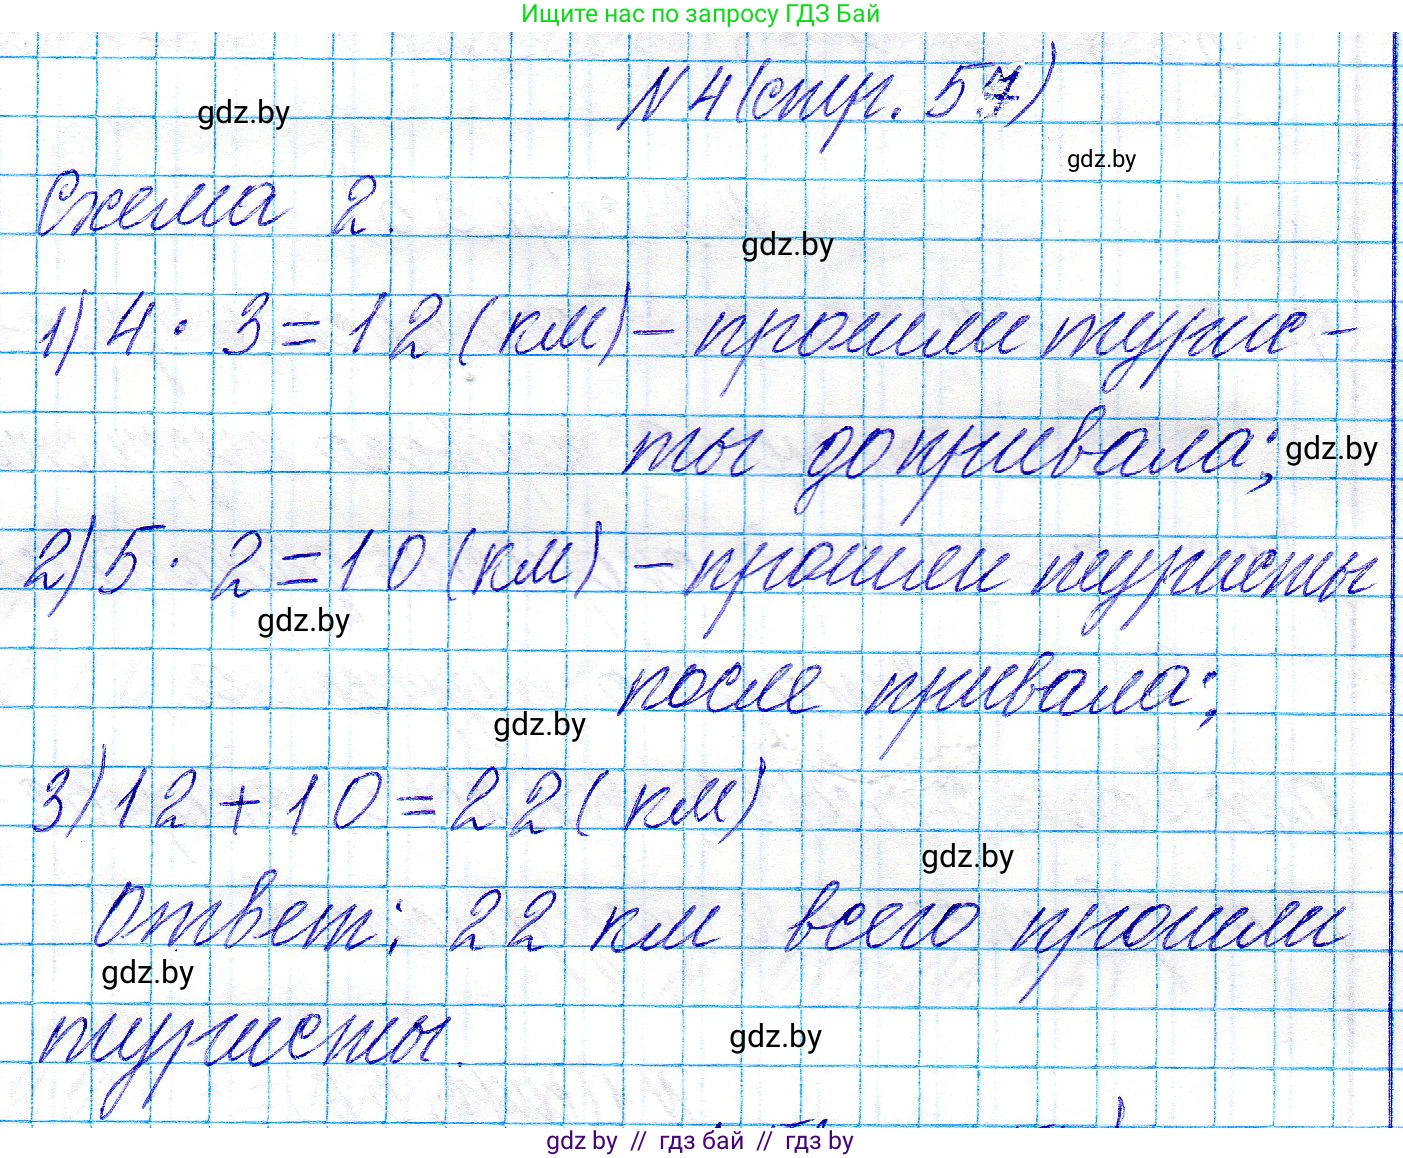 Ищите нас по запросу ГДЗ Бай
N 4 (стр. 57)
gdz.by
gdz.by
Схема 2.
gdz.by
1) 4 · 3 = 12 (км) – прошли турис-
ты до привала; gdz.by
2) 5 · 2 = 10 (км) – прошли туристы
gdz.by
после привала;
gdz.by
3) 12 + 10 = 22 (км)
gdz.by
Ответ: 22 км всего прошли
gdz.by
туристы.
gdz.by
gdz by // гдз бай // гдз by